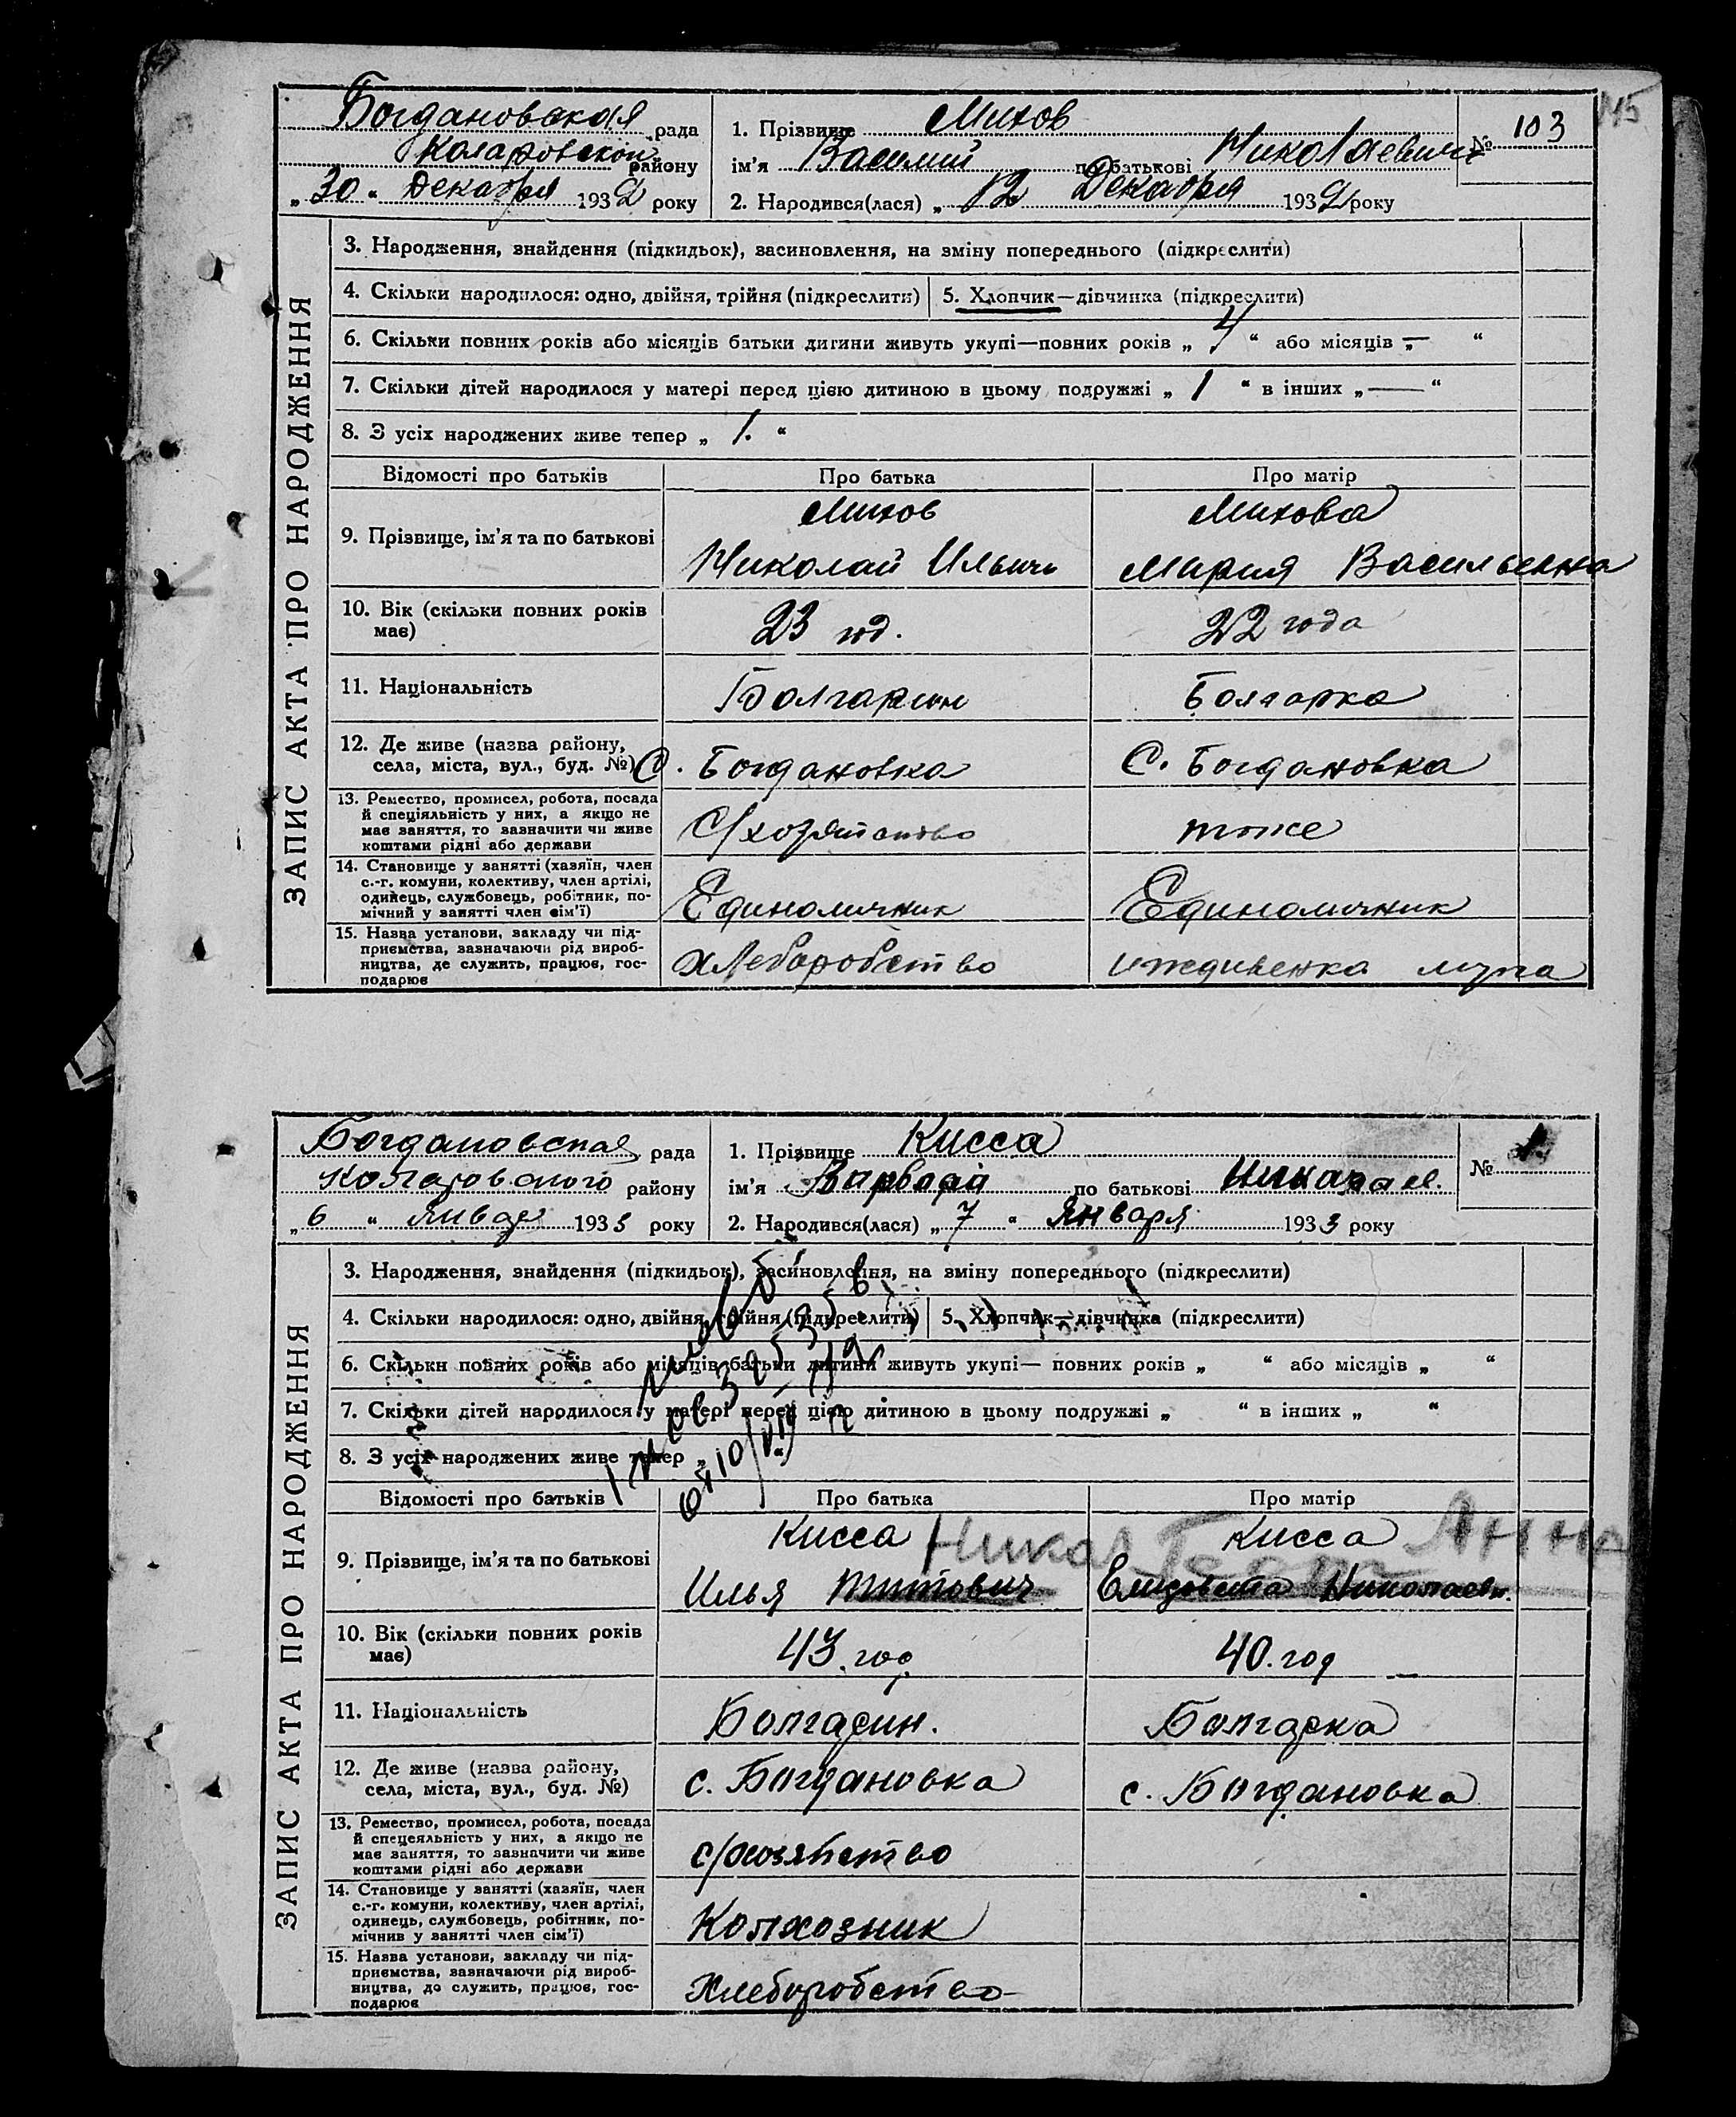 115
Богдановская рада
Коларовской району
„30“ Декабря 1932 року
1. Прізвище Михов
ім'я Василий по батькові Николаевич
№ 103
2. Народився(лася) „12 Декабря 1932 року
ЗАПИС АКТА ПРО НАРОДЖЕННЯ
3. Народження, знайдення (підкидьок), засиновлення, на зміну попереднього (підкреслити)
4. Скільки народилося: одно, двійня, трійня (підкреслити) 5. Хлопчик—дівчинка (підкреслити)
6. Скільки повних років або місяців батьки дитини живуть укупі—повних років „ 4 “ або місяців „ — “
7. Скільки дітей народилося у матері перед цією дитиною в цьому подружжі „ 1 “ в інших „ — “
8. З усіх народжених живе тепер „ 1. “
Відомості про батьків Про батька Про матір
9. Прізвище, ім'я та по батькові
Михов Михова
Николай Ильич Мария Васильевна
10. Вік (скільки повних років
має)
23 год. 22 года
11. Національність Болгарин Болгарка
12. Де живе (назва району,
села, міста, вул., буд. №) С. Богдановка С. Богдановка
13. Ремество, промисел, робота, посада
й спеціяльність у них, а якщо не
має заняття, то зазначити чи живе
коштами рідні або держави
С/хозяйство тоже
14. Становище у занятті (хазяїн, член
с.-г. комуни, колективу, член артілі,
одинець, службовець, робітник, по-
мічний у занятті член сім'ї)
Единоличник Единоличник
15. Назва установи, закладу чи під-
приємства, зазначаючи рід вироб-
ництва, де служить, працює, гос-
подарює
хлеборобство иждивенка мужа
Богдановская рада
Коларовского району
„6“ января 1933 року
1. Прізвище Кисса
ім'я Варвара по батькові Никола
№ 1
2. Народився(лася) „7“ Января 1933 року
ЗАПИС АКТА ПРО НАРОДЖЕННЯ
3. Народження, знайдення (підкидьок), засиновлення, на зміну попереднього (підкреслити)
4. Скільки народилося: одно, двійня, трійня (підкреслити) 5. Хлопчик—дівчинка (підкреслити)
6. Скільки повних років або місяців батьки дитини живуть укупі— повних років „ “ або місяців „ “
7. Скільки дітей народилося у матері перед цією дитиною в цьому подружжі „ “ в інших „ “
8. З усіх народжених живе тепер „ “
Відомості про батьків Про батька Про матір
9. Прізвище, ім'я та по батькові
Кисса Никол Кисса Анна
Илья Титович Елизовета Николаевн.
10. Вік (скільки повних років
має)
43. год 40. год
11. Національність Болгарин. Болгарка
12. Де живе (назва району,
села, міста, вул., буд. №) с. Богдановка с. Богдановка
13. Ремество, промисел, робота, посада
й спецеяльність у них, а якщо не
має заняття, то зазначити чи живе
коштами рідні або держави
с/хозяйство
14. Становище у занятті (хазяїн, член
с.-г. комуни, колективу, член артілі,
одинець, службовець, робітник, по-
мічнив у занятті член сім'ї)
Колхозник
15. Назва установи, закладу чи під-
приємства, зазначаючи рід вироб-
ництва, до служить, працює, гос-
подарює
Хлеборобство